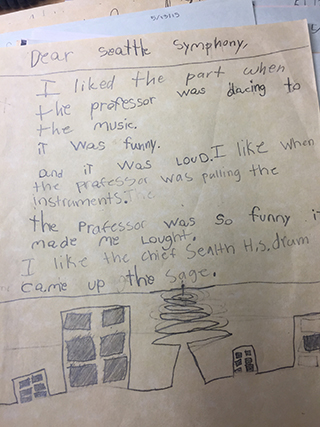 5/15/15
Dear Seattle Symphony,
I liked the part when
the professor was dacing to
the music.
it was funny.
and it was LOUD. I like when
the prafessor was pulling the
instruments. The
the Professor was so funny it
made me Lought.
I like the chief Sealth H.s. drum
came up the sage.